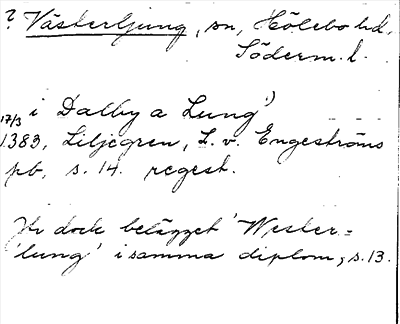 ? Västerljung, sn, Hölebo hd,
Söderm. l.
i Dalby a Lung)
17/3
1383, Liljegren, L. v. Engeströms
pb, s. 14. regest.
Jfr dock belägget 'Wester-
lung' i samma diplom, s. 13.